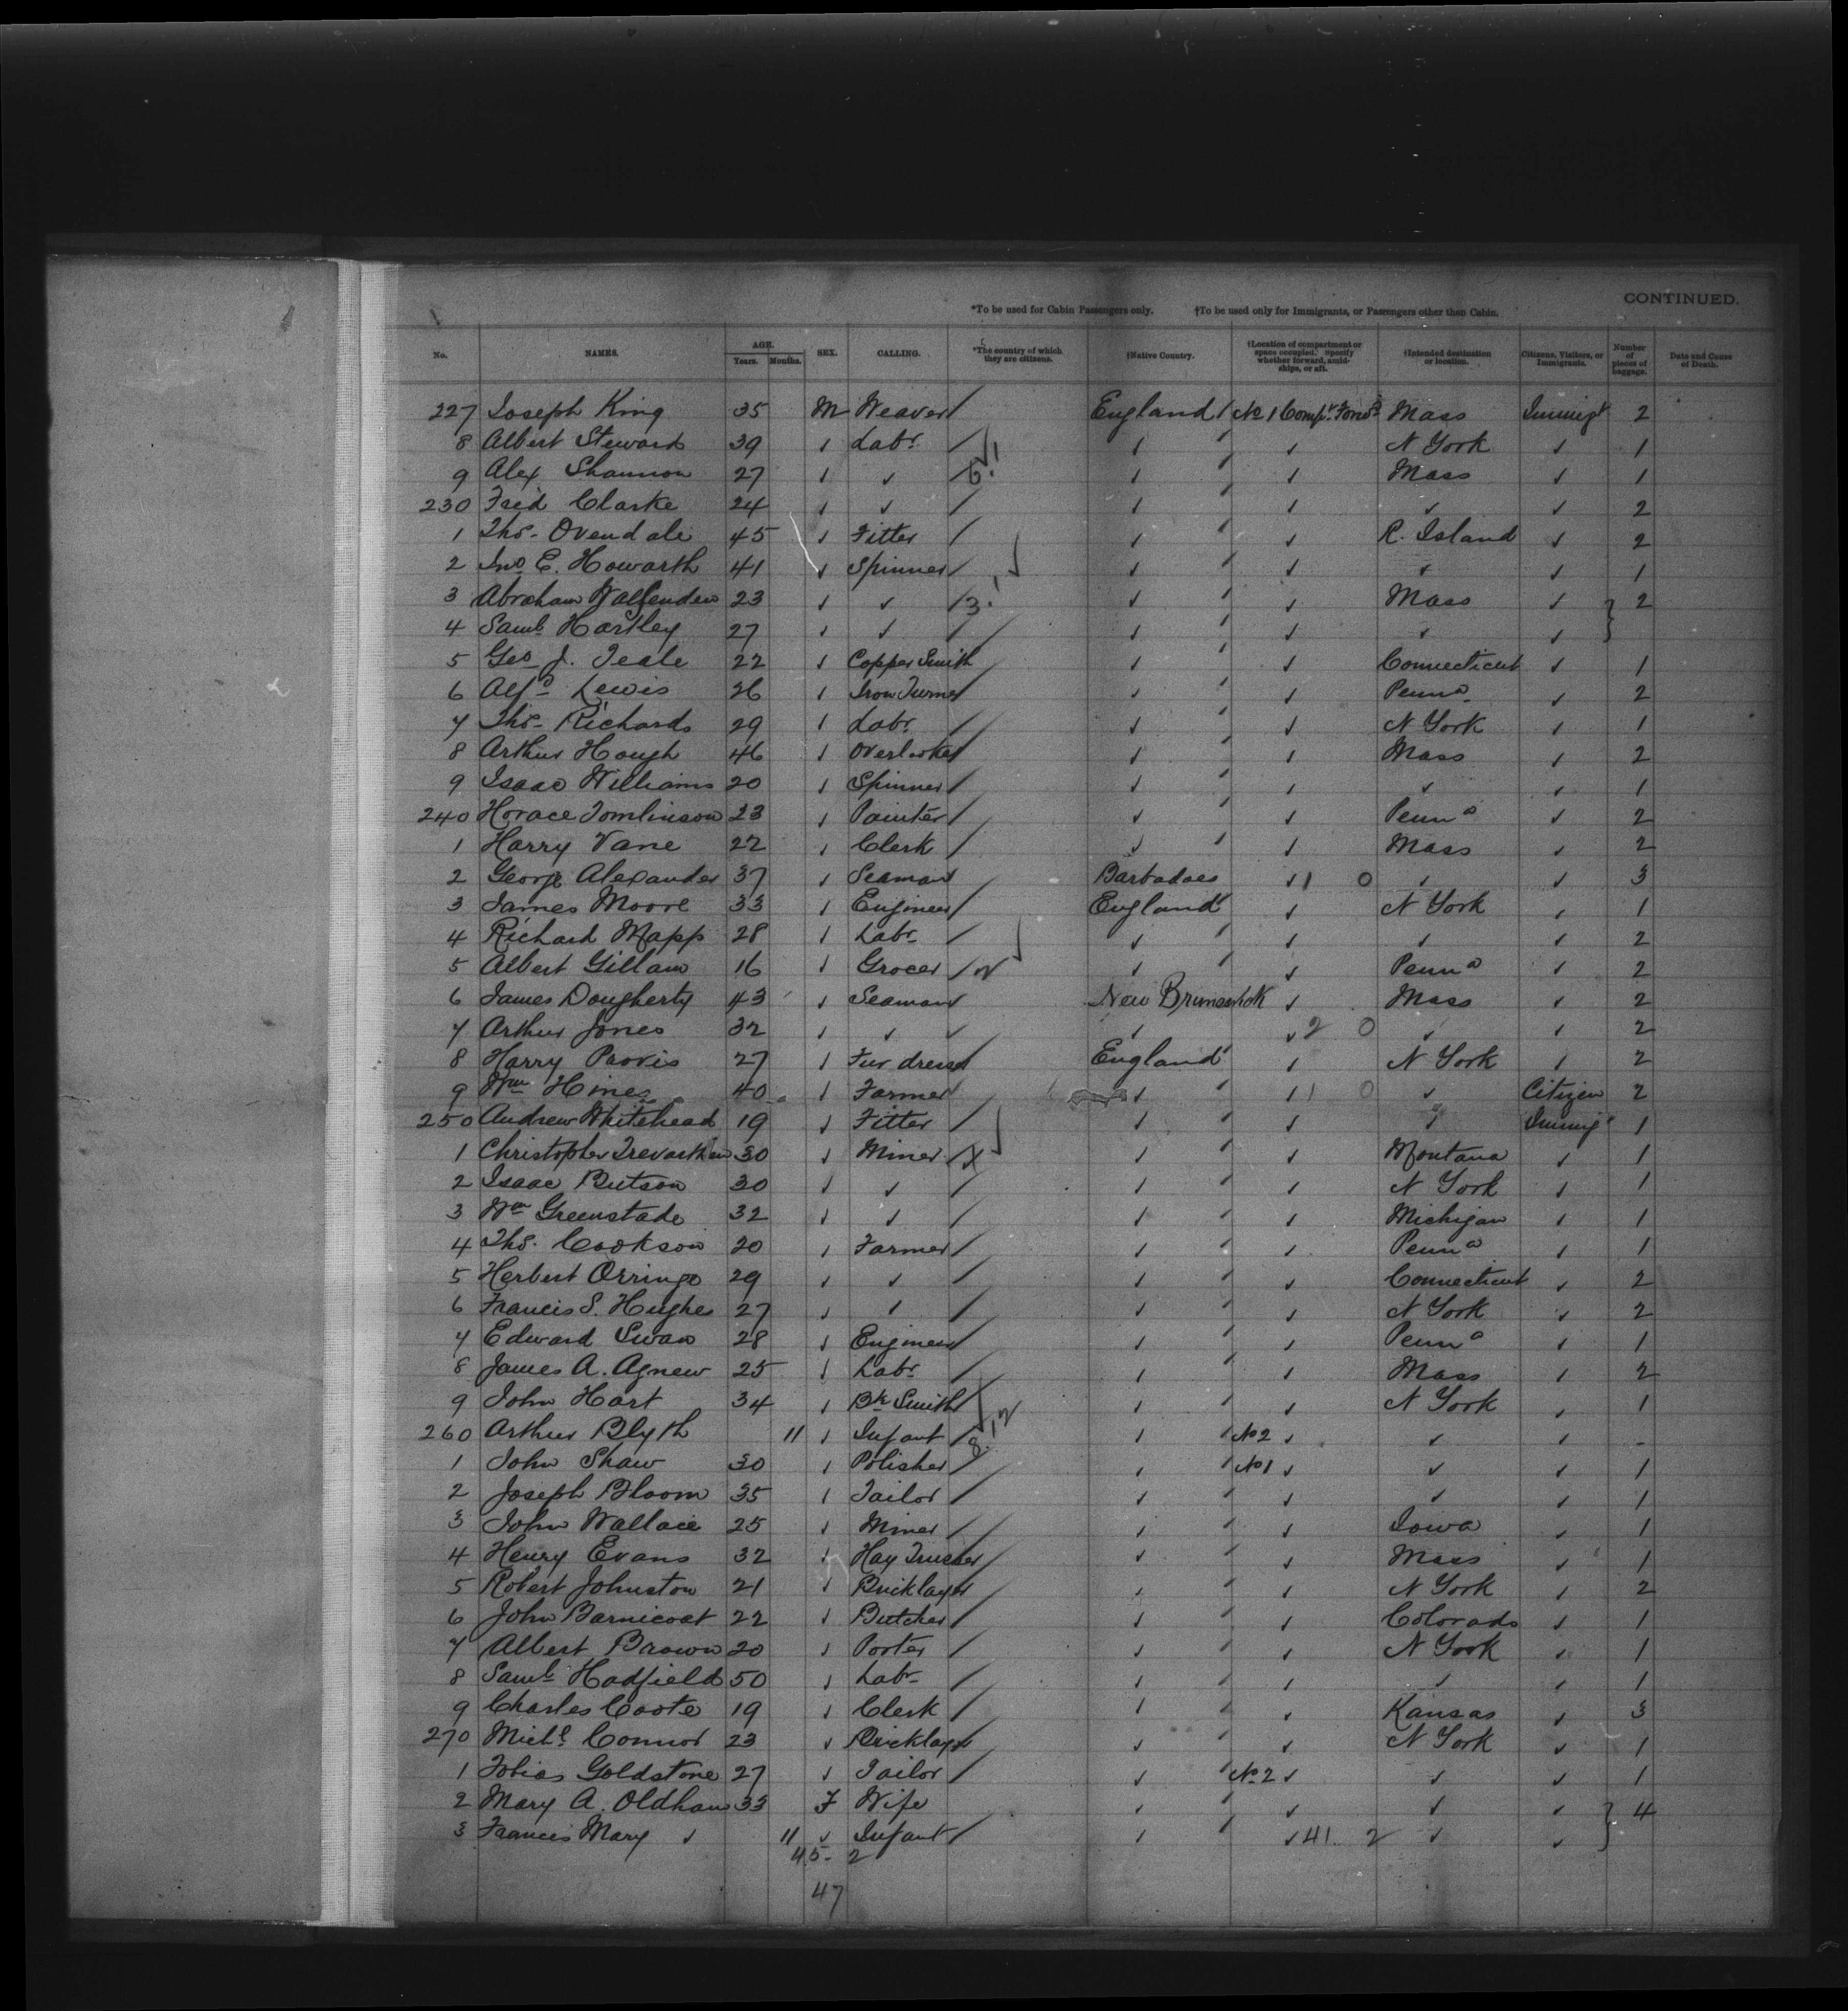 CONTINUED.
*To be used for Cabin Passengers only. †To be used only for Immigrants, or Passengers other than Cabin.
No. NAMES. AGE. Years. Months. SEX. CALLING. *The country of which they are citizens. †Native Country. †Location of compartment or space occupied. Specify whether forward, amidships, or aft. †Intended destination or location. Citizens, Visitors, or Immigrants. Number of pieces of baggage. Date and Cause of Death.
227 Joseph King 35 M Weaver / England / No 1 Compt. Forwd Mass Immigt 2
8 Albert Steward 39 ✓ Labr. / ✓ ✓ N York ✓ 1
9 Alex Shannon 27 ✓ ✓ / ✓ ✓ Mass ✓ 1
230 Fred Clarke 24 ✓ ✓ / ✓ ✓ ✓ ✓ 2
1 Thos. Ovendale 45 ✓ Fitter / ✓ ✓ R. Island ✓ 2
2 Jno E. Howarth 41 ✓ Spinner / ✓ ✓ ✓ ✓ 1
3 Abraham 23 ✓ ✓ / 3. ✓ ✓ Mass ✓ } 2
4 Saml. Hartley 27 ✓ ✓ / ✓ ✓ ✓ ✓
5 Geo J. Teale 22 ✓ Copper Smith ✓ ✓ Connecticut ✓ 1
6 Alfd Lewis 26 ✓ Iron Turner ✓ ✓ Penna ✓ 2
7 Thos. Richards 29 ✓ Labr. / ✓ ✓ N York ✓ 1
8 Arthur Hough 46 ✓ Overlooker ✓ ✓ Mass ✓ 2
9 Isaac Williams 20 ✓ Spinner / ✓ ✓ ✓ ✓ 1
240 Horace Tomlinson 23 ✓ Painter / ✓ ✓ Penna ✓ 2
1 Harry Vane 22 ✓ Clerk / ✓ ✓ Mass ✓ 2
2 George Alexander 37 ✓ Seaman Barbadoes ✓ 1 0 ✓ ✓ 3
3 James Moore 33 ✓ Engineer / England ✓ N York ✓ 1
4 Richard Mapp 28 ✓ Labr. / ✓ ✓ ✓ ✓ 2
5 Albert Gillam 16 ✓ Grocer / ✓ ✓ Penna ✓ 2
6 James Dougherty 43 ✓ Seaman New Brunswick ✓ Mass ✓ 2
7 Arthur Jones 32 ✓ ✓ ✓ ✓ ✓ 2 0 ✓ ✓ 2
8 Harry Provis 27 ✓ Fur dresser England ✓ N York ✓ 2
9 Wm Hines 40 ✓ Farmer ✓ ✓ 1 0 ✓ Citizen 2
250 Andrew Whitehead 19 ✓ Fitter / ✓ ✓ ✓ Immigt 1
1 Christopher Trevarthen 30 ✓ Miner / ✓ ✓ Montana ✓ 1
2 Isaac Butson 30 ✓ ✓ / ✓ ✓ N York ✓ 1
3 Wm Greenstade 32 ✓ ✓ / ✓ ✓ Michigan ✓ 1
4 Thos. Cookson 20 ✓ Farmer / ✓ ✓ Penna ✓ 1
5 Herbert Orringe 29 ✓ ✓ / ✓ ✓ Connecticut ✓ 2
6 Francis S. Hughes 27 ✓ ✓ / ✓ ✓ N York ✓ 2
7 Edward Swan 28 ✓ Engineer ✓ ✓ Penna ✓ 1
8 James A. Agnew 25 ✓ Labr. / ✓ ✓ Mass ✓ 2
9 John Hart 34 ✓ Bk Smith ✓ ✓ N York ✓ 1
260 Arthur Blyth 11 ✓ Infant / ✓ No 2 ✓ ✓ ✓ -
1 John Shaw 30 ✓ Polisher / ✓ No 1 ✓ ✓ ✓ 1
2 Joseph Bloom 35 ✓ Tailor / ✓ ✓ ✓ ✓ 1
3 John Wallace 25 ✓ Miner / ✓ ✓ Iowa ✓ 1
4 Henry Evans 32 ✓ Hay Trusser ✓ ✓ Mass ✓ 1
5 Robert Johnston 21 ✓ Bricklayer ✓ ✓ N York ✓ 2
6 John Barnicoat 22 ✓ Butcher / ✓ ✓ Colorado ✓ 1
7 Albert Brown 20 ✓ Porter / ✓ ✓ N York ✓ 1
8 Saml. Hadfield 50 ✓ Labr. ✓ ✓ ✓ ✓ 1
9 Charles Coote 19 ✓ Clerk / ✓ ✓ Kansas ✓ 3
270 Michl. Connor 23 ✓ Bricklayer ✓ ✓ N York ✓ 1
1 Tobias Goldstone 27 ✓ Tailor / ✓ No. 2 ✓ ✓ ✓ 1
2 Mary A. Oldham 33 F Wife ✓ ✓ ✓ ✓ } 4
3 Frances Mary ✓ 11 ✓ Infant / ✓ ✓ 41. 2 ✓ ✓
45- 2
47